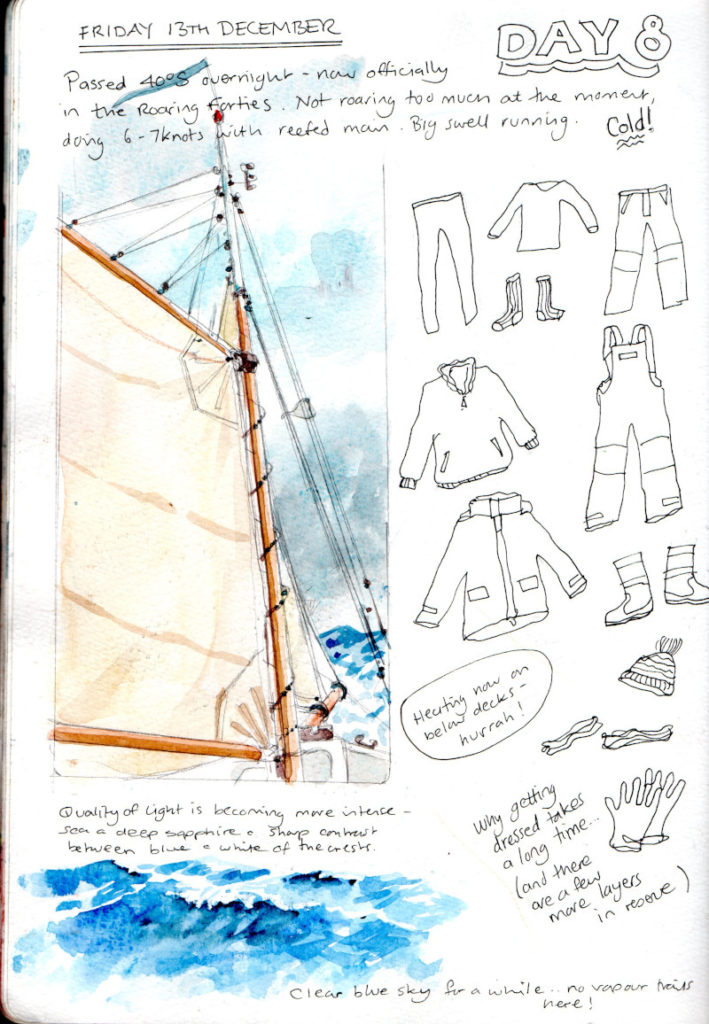 FRIDAY 13TH DECEMBER
DAY 8
Passed 40°S overnight - now officially
in the Roaring Forties. Not roaring too much at the moment,
doing 6-7knots with reefed main. Big swell running.
Cold!
Heating now on
below decks -
hurrah!
Why getting
dressed takes
a long time...
(and there
are a few
more layers
in reserve)
Quality of light is becoming more intense -
sea a deep sapphire & sharp contrast
between blue & white of the crests.
Clear blue sky for a while... no vapour trails
here!